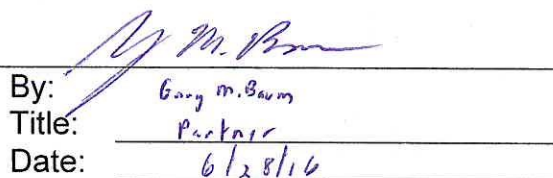 By: Gary M. Baum
Title: Partner
Date: 6/28/16